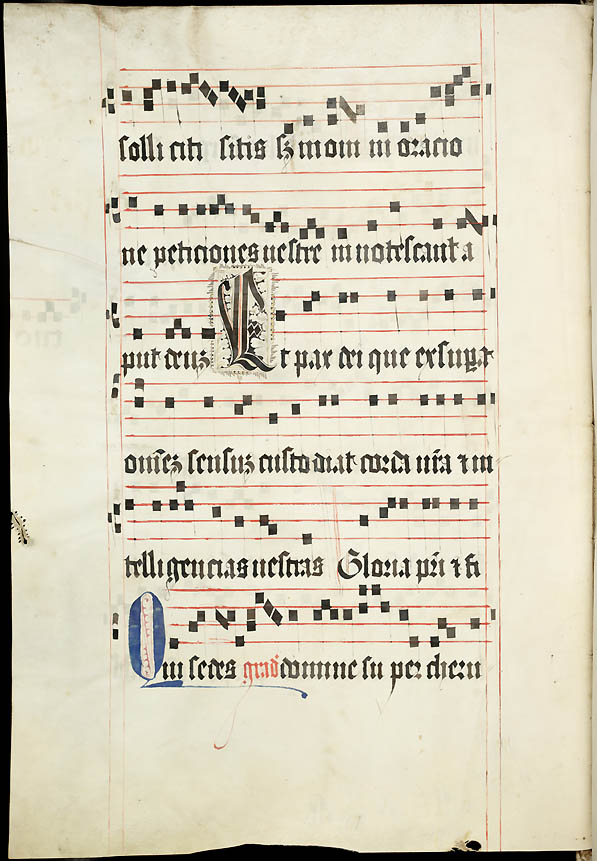 solli citi sitis sꝫ in om ni oracio
ne peticiones uestre in notescant a
put deuꝫ Et pax dei que exsuꝑat
om̄eꝫ sensuꝫ custo diat corda ur̄a ⁊ in
telligencias uestras Gloria pr̄i ⁊ fi
Qui sedes grad̄ domine su per cheru